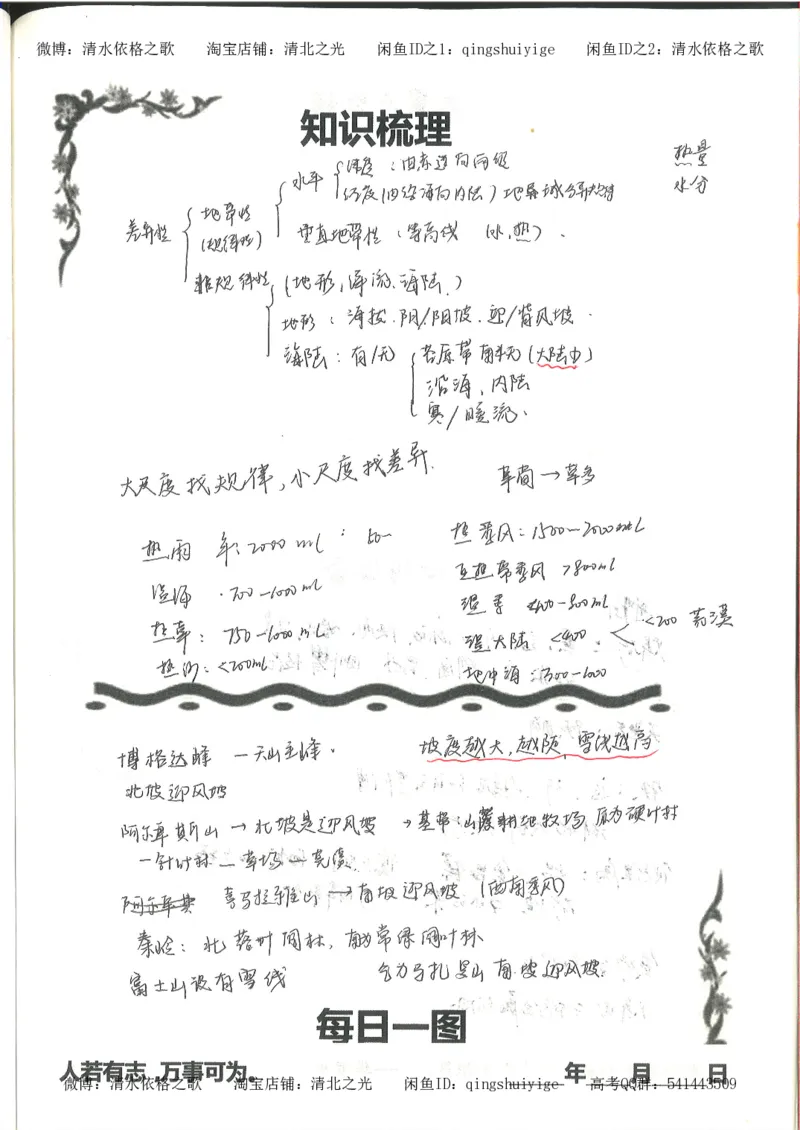 微博：清水依格之歌 淘宝店铺：清北之光 闲鱼ID之1：qingshuiyige 闲鱼ID之2：清水依格之歌
知识梳理
热量
水分
差异性
地带性
(规律性)
水平
纬度：由赤道向两极
经度(由沿海向内陆)地带
垂直地带性(等高线 (水,热)).
非规律性 (地形,洋流、海陆.)
地形：海拔.阴/阳坡.迎/背风坡.
海陆：有/无
(大陆少)
沿海、内陆
寒/暖流.
大尺度找规律,小尺度找差异.
草简→草多
热雨 年：2000ml
热季风：1500-2000ml
温海 ·700-1000ml
亚热带季风 >800ml
热草：750-1000ml
温季 <400-800ml
温大陆 <400 < <200 荒漠
热沙：<200ml
地中海：300-1000
博格达峰 —天山主峰.
坡度越大,越陡,雪线越高
北坡迎风坡
阿尔卑斯山→北坡是迎风坡 →基带：山麓耕地牧场,原为硬叶林
—针叶林—草场—荒漠
喜马拉雅山→南坡迎风坡(西南季风)
秦岭：北落叶阔林,南为常绿阔叶林
富士山没有雪线
乞力马扎罗山南坡迎风坡.
每日一图
人若有志，万事可为。 年 月 日
微博：清水依格之歌 淘宝店铺：清北之光 闲鱼ID：qingshuiyige 高考QQ群：541443509